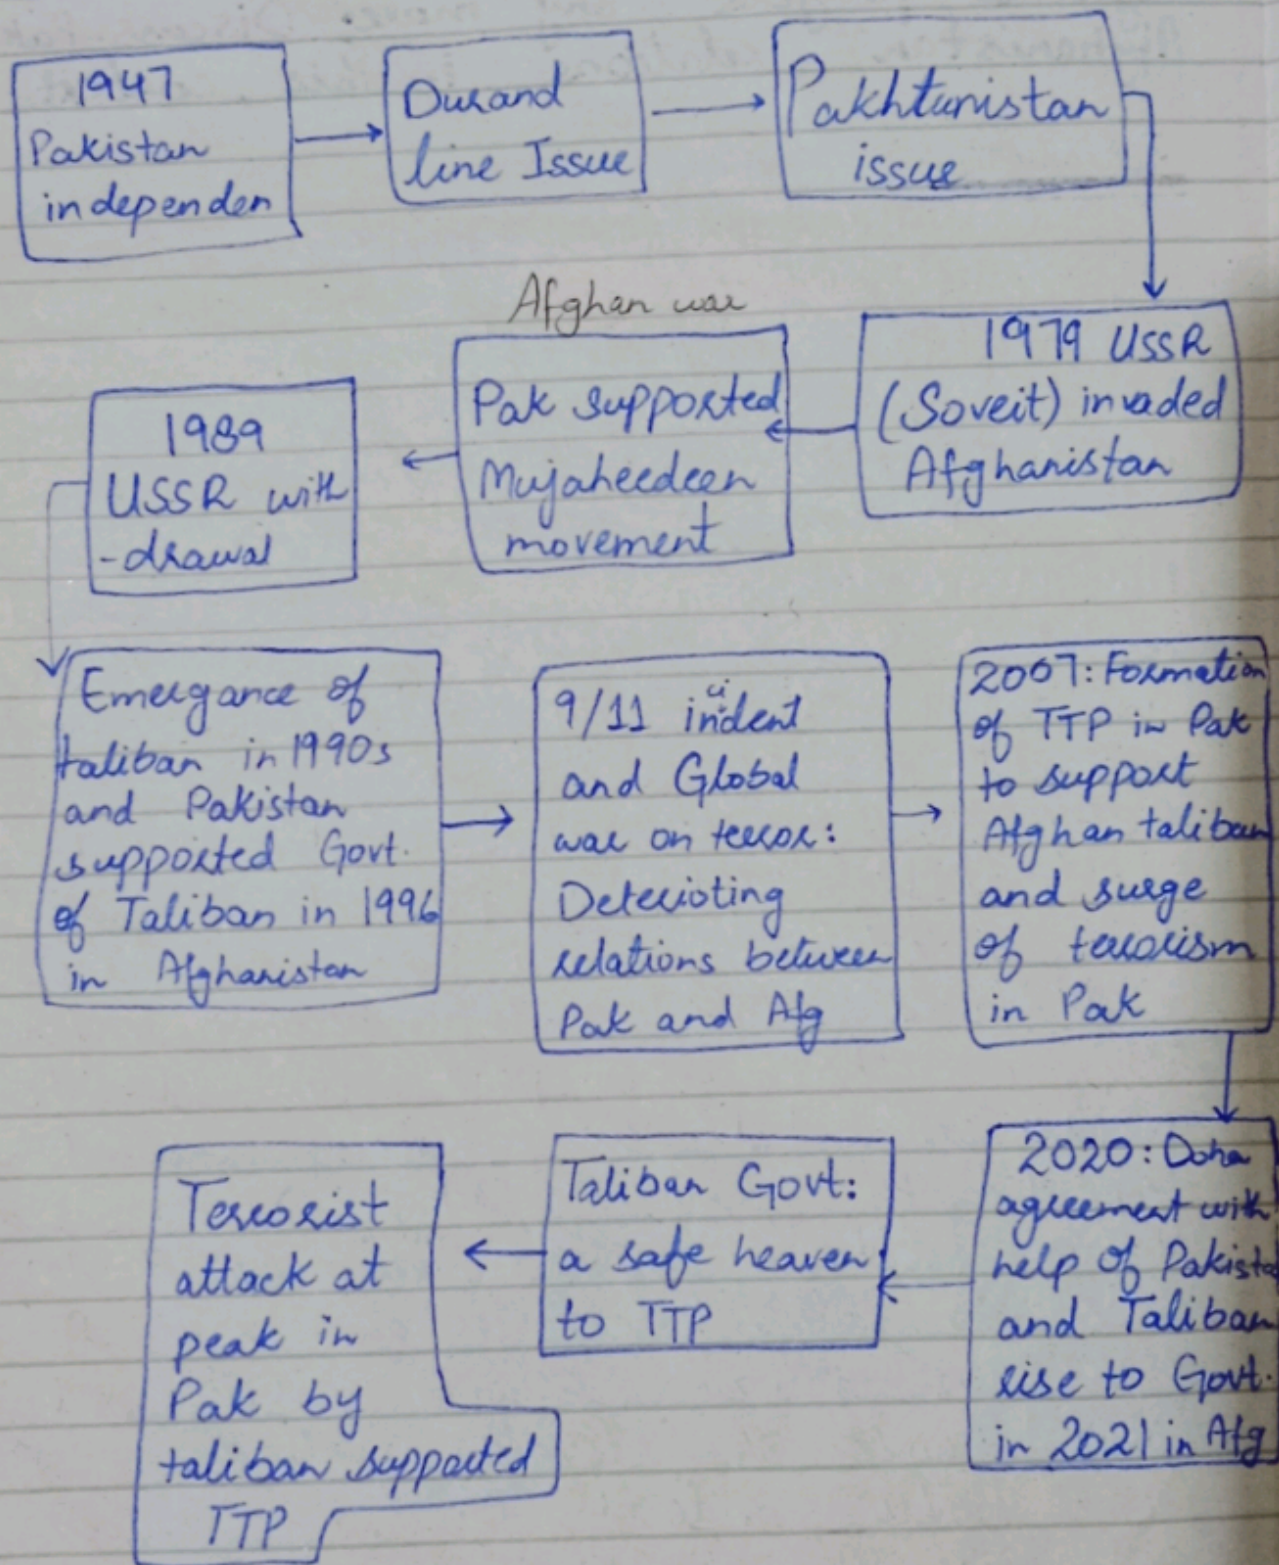 1947
Pakistan
independen
Durand
line Issue
Pakhtunistan
issue
1979 USSR
(Soveit) invaded
Afghanistan
Afghan war
Pak supported
Mujaheedeen
movement
1989
USSR with
-drawal
Emergance of
taliban in 1990s
and Pakistan
supported Govt.
of Taliban in 1996
in Afghanistan
9/11 incident
and Global
war on terror:
Deterioting
relations between
Pak and Afg
2007: Formation
of TTP in Pak
to support
Afghan taliban
and surge
of terrorism
in Pak
2020: Doha
agreement with
help of Pakista
and Taliban
rise to Govt.
in 2021 in Afg
Taliban Govt:
a safe heaven
to TTP
Terrorist
attack at
peak in
Pak by
taliban supported
TTP